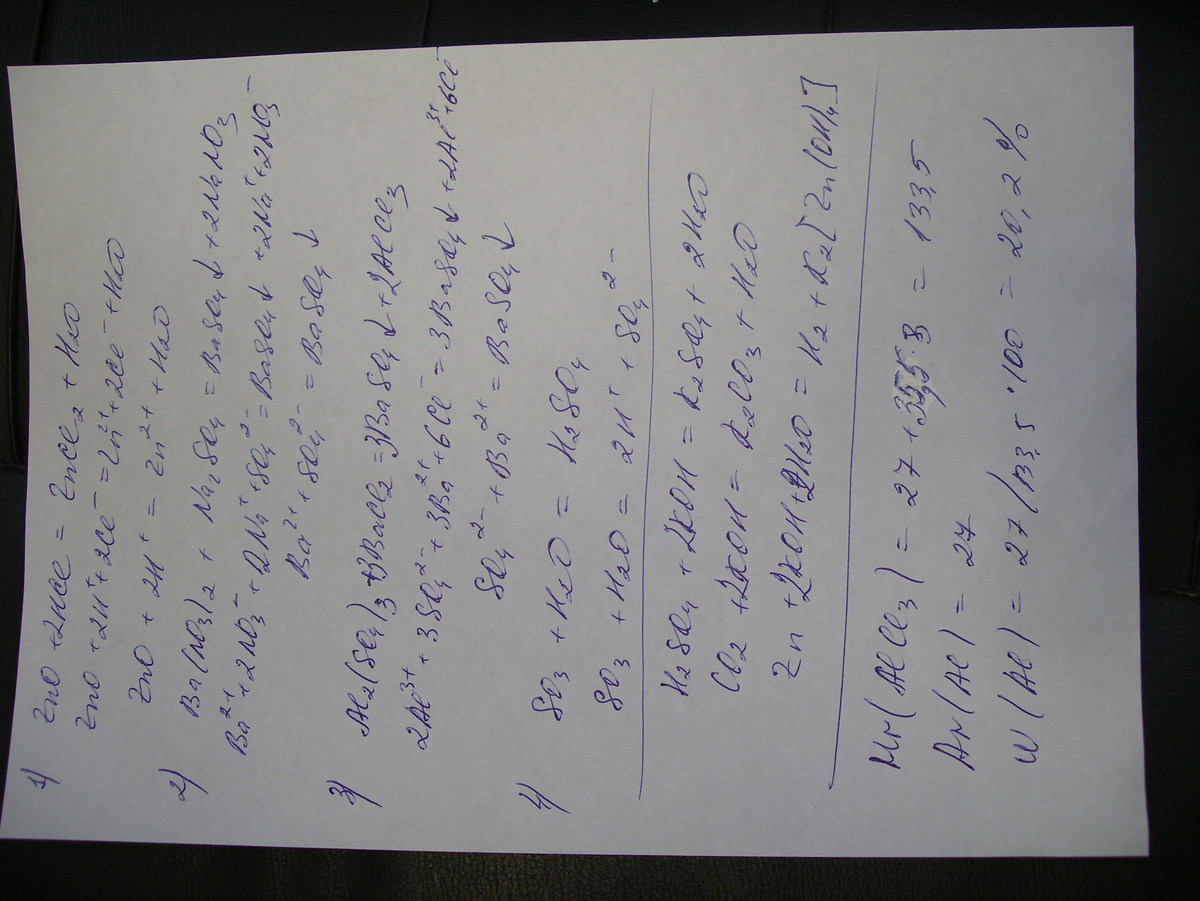 1) ZnO + 2HCl = ZnCl₂ + H₂O
ZnO + 2H⁺ + 2Cl⁻ = Zn²⁺ + 2Cl⁻ + H₂O
ZnO + 2H⁺ = Zn²⁺ + H₂O
2) Ba(NO₃)₂ + Na₂SO₄ = BaSO₄↓ + 2NaNO₃
Ba²⁺ + 2NO₃⁻ + 2Na⁺ + SO₄²⁻ = BaSO₄↓ + 2Na⁺ + 2NO₃⁻
Ba²⁺ + SO₄²⁻ = BaSO₄↓
3) Al₂(SO₄)₃ + 3BaCl₂ = 3BaSO₄↓ + 2AlCl₃
2Al³⁺ + 3SO₄²⁻ + 3Ba²⁺ + 6Cl⁻ = 3BaSO₄↓ + 2Al³⁺ + 6Cl⁻
SO₄²⁻ + Ba²⁺ = BaSO₄↓
4) SO₃ + H₂O = H₂SO₄
SO₃ + H₂O = 2H⁺ + SO₄²⁻
H₂SO₄ + 2KOH = K₂SO₄ + 2H₂O
CO₂ + 2KOH = K₂CO₃ + H₂O
Zn + 2KOH + 2H₂O = H₂ + K₂[Zn(OH)₄]
Mr(AlCl₃) = 27 + 35,5·3 = 133,5
Ar(Al) = 27
W(Al) = 27/133,5 · 100 = 20,2%